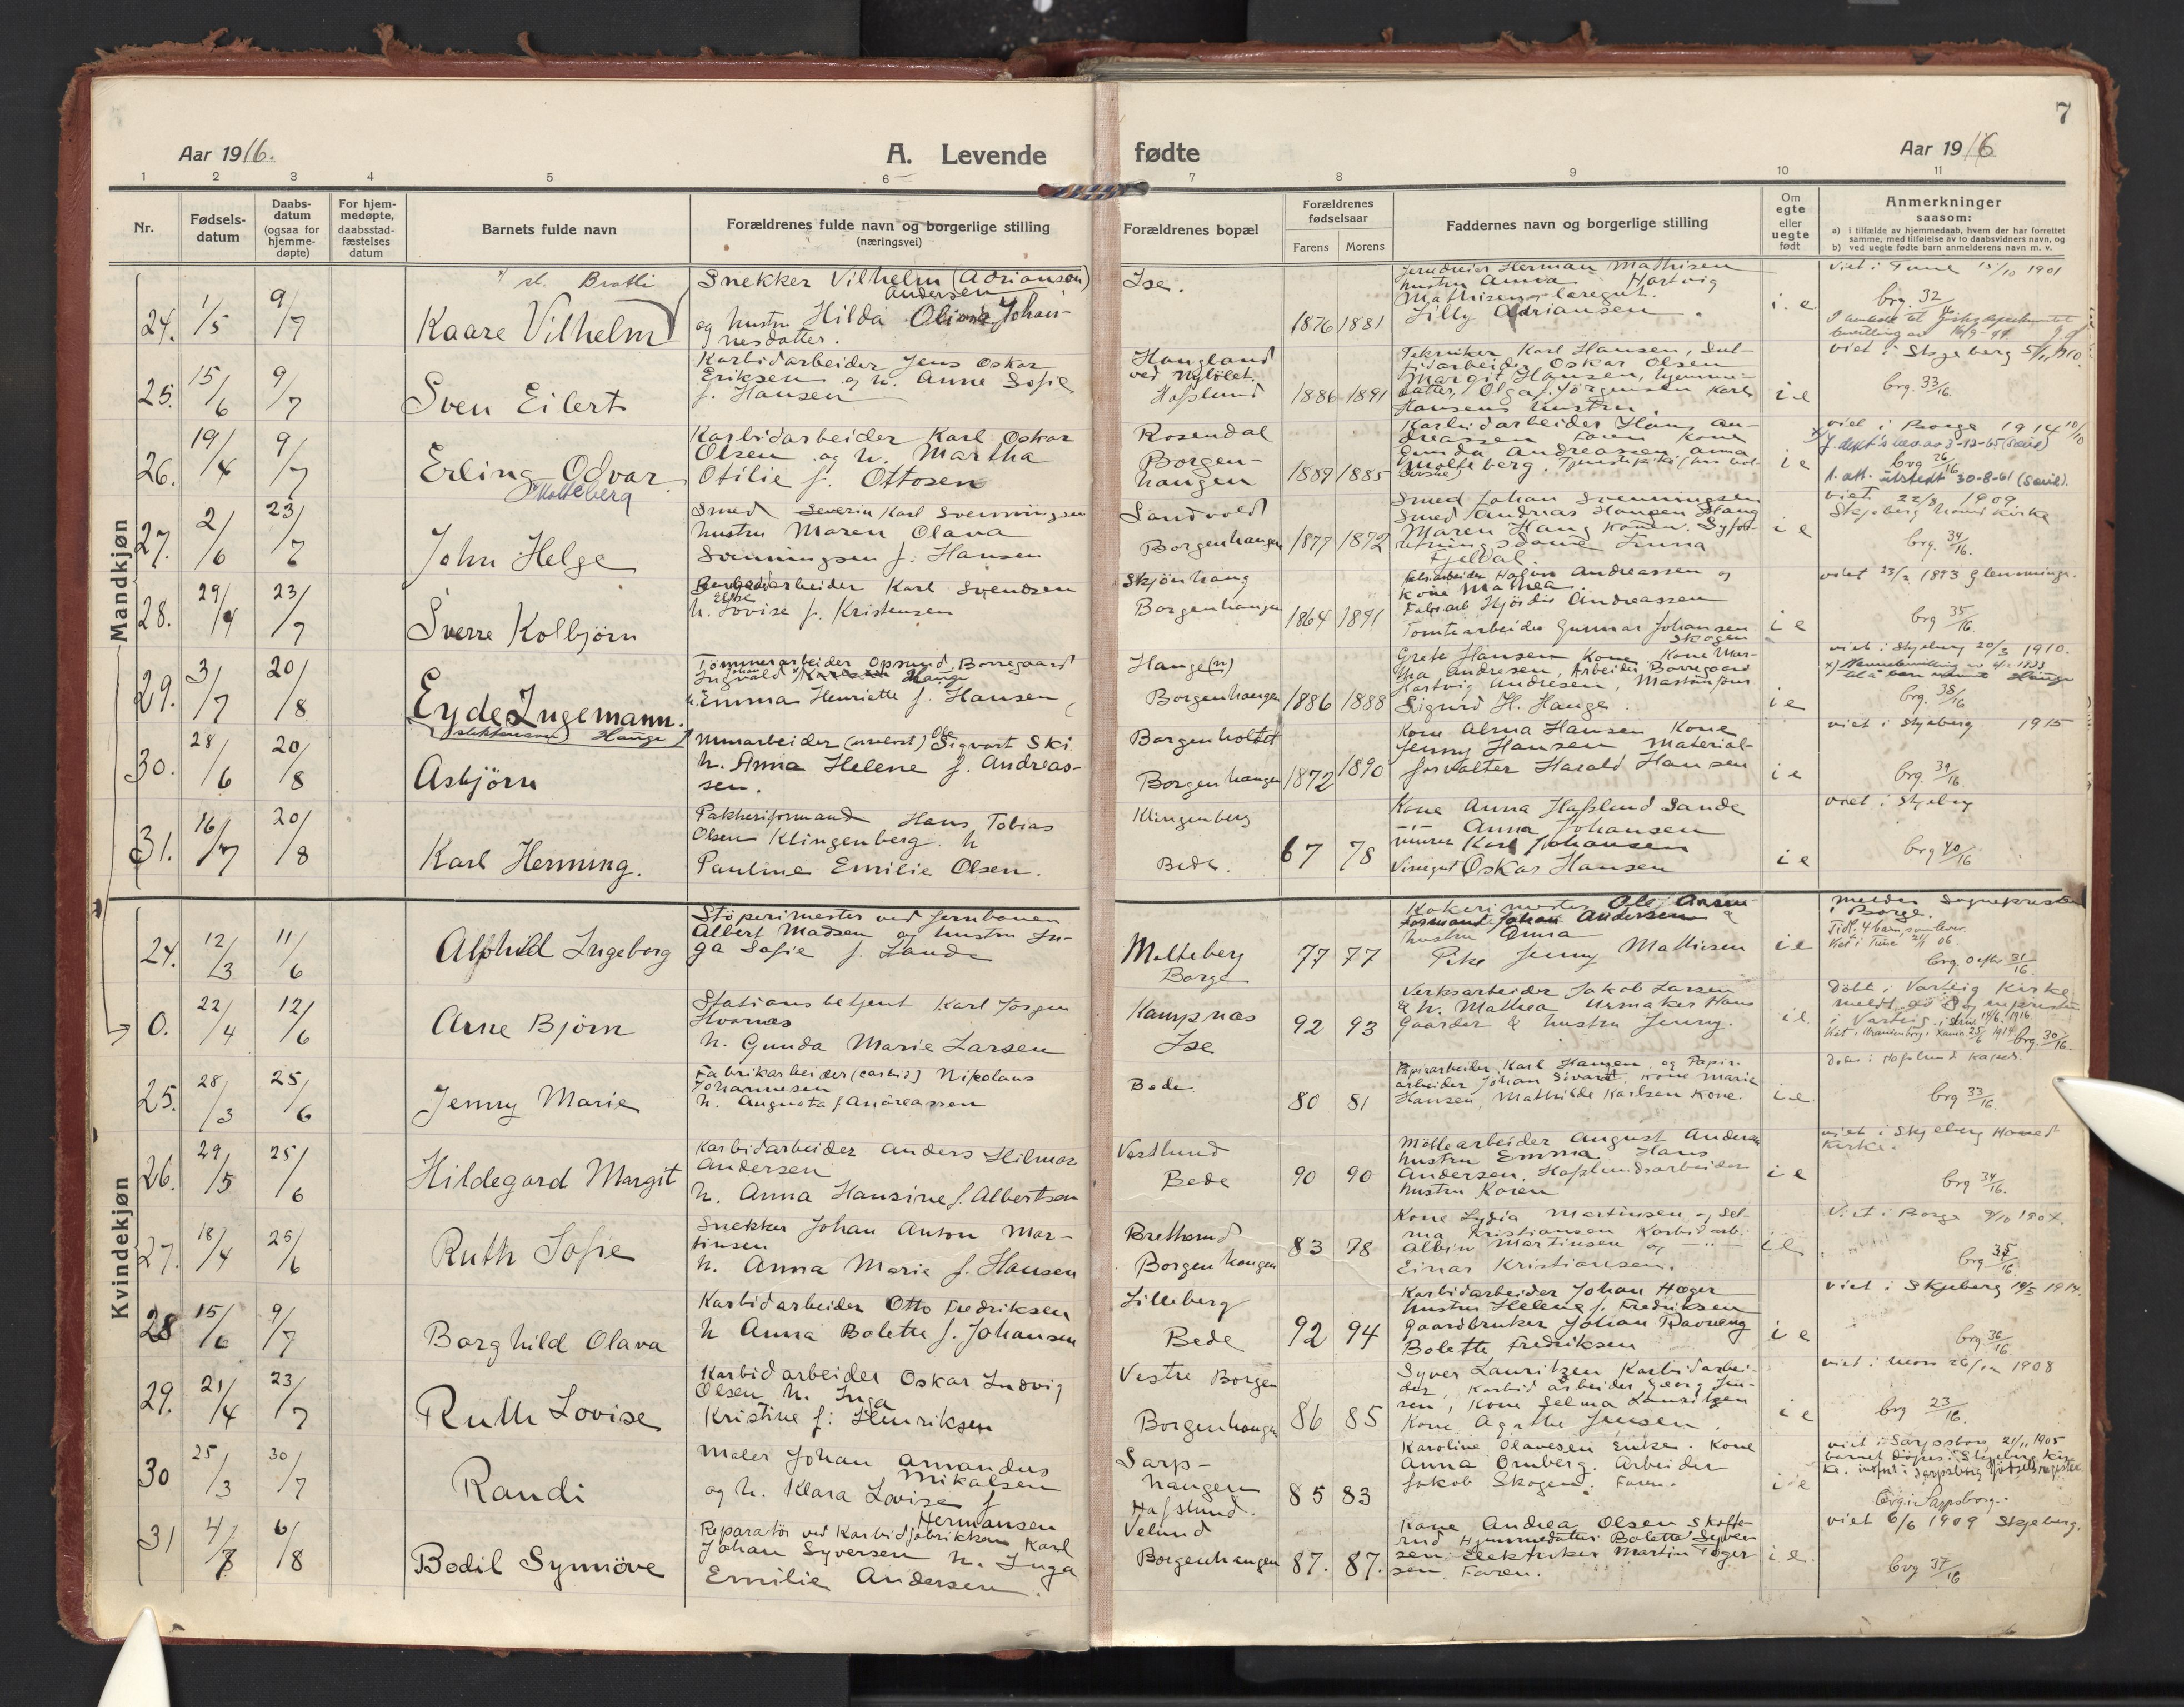 7
Aar 1916.
A. Levende
fødte
Aar 1916
1 2 3 4 5 6 7 8 9 10 11
Nr.
Fødsels-
datum
Daabs-
datum
(ogsaa for
hjemme-
døpte)
For hjem-
medøpte,
daabsstad-
fæstelses
datum
Barnets fulde navn
Forældrenes fulde navn og borgerlige stilling
(næringsvei)
Forældrenes bopæl
Forældrenes
fødselsaar
Farens
Morens
Faddernes navn og borgerlige stilling
Om
egte
eller
uegte
født
Anmerkninger
saasom:
a) i tilfælde av hjemmedaab, hvem der har forrettet
samme, med tilføielse av to daabsvidners navn, og
b) ved uegte fødte barn anmelderens navn m. v.
Mandkjøn
24. 1/5 9/7
Kaare Vilhelm
Snekker Vilhelm (Adriansen)
Andersen
og hustru Hilda Olivia Johan-
nesdatter.
Ise.
1876 1881
Herman Mathisen
hustru Anna Hartvig
Mathisen
Lilly Adriansen
i. e
viet i Tune 15/10 1901
brg. 32/16
25. 15/6 9/7
Sven Eilert
Karbidarbeider Jens Oskar
Eriksen og h. Anne Sofie
f. Hansen
Haugland
ved Nylølet.
Hafslund
1886 1891
Tekniker Karl Hansen, Sul-
fidarbeider Oskar Olsen
Margit Hansen, hjemme-
datter, Olga f. Jörgensen Karl
Hansens hustru.
i e
viet i Skjeberg 5/11 1910.
brg. 33/16.
26. 19/4 9/7
Erling Odvar
Molteberg
Karbidarbeider Karl Oskar
Olsen og h. Martha
Otilie f. Ottosen
Rosendal
Borgen-
haugen
1889 1885
Karbidarbeider Hans An-
dreassen Faren Kone
Gunda Andreassen Anna
Molteberg.
i e
viet i Borge 1914 10/10
brg 26/16
1. att. utstedt 30-8-61
27. 2/6 23/7
John Helge
Smed Severin Karl Svenningsen
hustru Maren Olava
Svenningsen f. Hansen
Sandvold
Borgenhaugen
1877 1872
Smed Johan Svenningsen
Smed Andreas Haugen Haug
Maren Haug Konen. Syfor-
retningsdame Tinna
Fjeldal
i e
viet 22/3 1909
Skjeberg Hoved Kirke
brg. 34/16.
28. 29/4 23/7
Sverre Kolbjörn
Karl Svendsen
h. Lovise f. Kristensen
Skjönhaug
Borgenhaugen
1864 1891
Andreassen og
kone Mathea
Hjördis Andreassen
Tomtearbeider Gunnar Johansen
Skogen
i e
viet 23/2 1893 Glemminge.
brg 35/16
29. 3/7 20/8
Eyde Ingemann.
Hauge
Tømmerarbeider Opsund, Borregaard
Ingvald Johan Hauge
h. Emma Henriette f. Hansen
Hauge(n)
Borgenhaugen
1886 1888
Grete Hansen Kone, Kone Mar-
tha Andresen, Arbeider Borregaard
Hartvig Andresen,
Sigurd H. Hauge.
i e
viet i Skjeberg 20/3 1910.
brg. 38/16
30. 28/6 20/8
Asbjörn
Murarbeider Ole Sigvart Ski
h. Anna Helene f. Andreas-
sen.
Borgenholtet
Borgenhaugen
1872 1890
Kone Alma Hansen Kone
Jenny Hansen Material-
forvalter Harald Hansen
i e
viet i Skjeberg 1915
brg. 39/16.
31. 16/7 20/8
Karl Henning.
Pakkeriformand Hans Tobias
Olsen Klingenberg. h
Pauline Emilie Olsen.
Klingenberg
Bede.
67 78
Kone Anna Hafslund Sande
-"- Anna Johansen
murer Karl Johansen
Oskar Hansen
i e
viet i Skjeberg
brg 40/16
Kvindekjøn
24. 12/3 11/6
Alfhild Ingeborg
Stöperimester ved Jernbanen
Albert Madsen og hustru In-
ga Sofie f. Lande
Molteberg
Borge
77 77
formand Johan Andersen &
hustru Anna
Pike Jenny Mathiesen
i e
Melder Sognepresten
i Borge.
Tidl. 4 barn, som lever.
Viet i Tune 21/1 06.
brg. 31/16.
0. 22/4 12/6
Arne Björn
Stationsbetjent Karl Jörgen
Hvarnæs
h. Gunda Marie Larsen
Kampnæs
Ise
92 93
Verksarbeider Jakob Larsen
& h. Mathea Urmaker Hans
Gaarder & hustru Jenny.
i e.
Döbt i Varteig Kirke
meldt av Sognepresten
i Varteig i skriv. 14/6. 1916.
brg. 30/16.
25. 28/3 25/6
Jenny Marie
Fabrikarbeider (carbid) Nikolaus
Johannesen
h. Augusta f Andreassen
Bede
80 81
Papirarbeider Karl Hansen og Papir-
arbeider Johan Sivard. Kone Marie
Hansen, Mathilde Karlsen Kone.
i e.
Döbt i Hafslund Kapel.
brg 33/16.
26. 29/5 25/6
Hildegard Margit
Karbidarbeider Anders Hilmar
Andersen
h. Anna Hansine f. Albertsen
Vestlund
Bede
90 90
Möllearbeider August Andersen
hustru Emma Hans
Andersen, Hafslundsarbeider
hustru Karen
i e
viet i Skjeberg Hoved
kirke.
brg 34/16.
27. 18/4 25/6
Ruth Sofie
Snekker Johan Anton Mar-
tinsen
h. Anna Marie f. Hansen
Bretterud
Borgenhaugen
83 78
Kone Lydia Martinsen og Sel-
ma Kristiansen Karbidarb.
Albin Martinsen og -"-
Einar Kristiansen.
i e
Viet i Borge 9/10 1904.
brg 35/16
28 15/6 9/7
Borghild Olava
Karbidarbeider Otto Fredriksen
h Anna Bolette f. Johansen
Lilleberg
Bede
92 94
Karbidarbeider Johan Hæger
hustru Helene f. Fredriksen
Gaardbruker Johan Ravneng
Bolette Fredriksen
i e
viet i Skjeberg 14/5 1914.
brg 36/16
29. 21/4 23/7
Ruth Lovise
Karbidarbeider Oskar Ludvig
Olsen h. Inga
Kristine f. Henriksen
Vestre Borgen
Borgenhaugen
86 85
Syver Lauritzen Karbidarbei-
der, Karbidarbeider Georg Jen-
sen, Kone Selma Lauritzen
Kone Agathe Jensen
i e
viet i Moss 26/12 1908
brg 23/16.
30 25/3 30/7
Randi
Maler Johan Amandus
Mikalsen
og h. Klara Lovise f
Hermansen
Sarp-
haugen
Hafslund.
85 83
Karoline Olavesen Enke. Kone
Anna Ornberg. Arbeider
Jakob Skogen. Faren.
i e
viet i Sarpsborg 21/11 1905
barnet döpes i Skjeberg Kir-
ke. indført i Sarpsborg fødselsregister
brg i Sarpsborg.
31 4/7 6/8
Bodil Synnöve
Reparatör ved Karbidfabrikken Karl
Johan Syversen h. Inga
Emilie Andersen.
Velund
Borgenhaugen
87. 87.
Kone Andrea Olsen Skofte-
rud Hjemmedatter Bolette Syver
sen. Elektriker Martin Teger
sen Faren.
i e.
viet 6/6 1909 Skjeberg.
brg 37/16